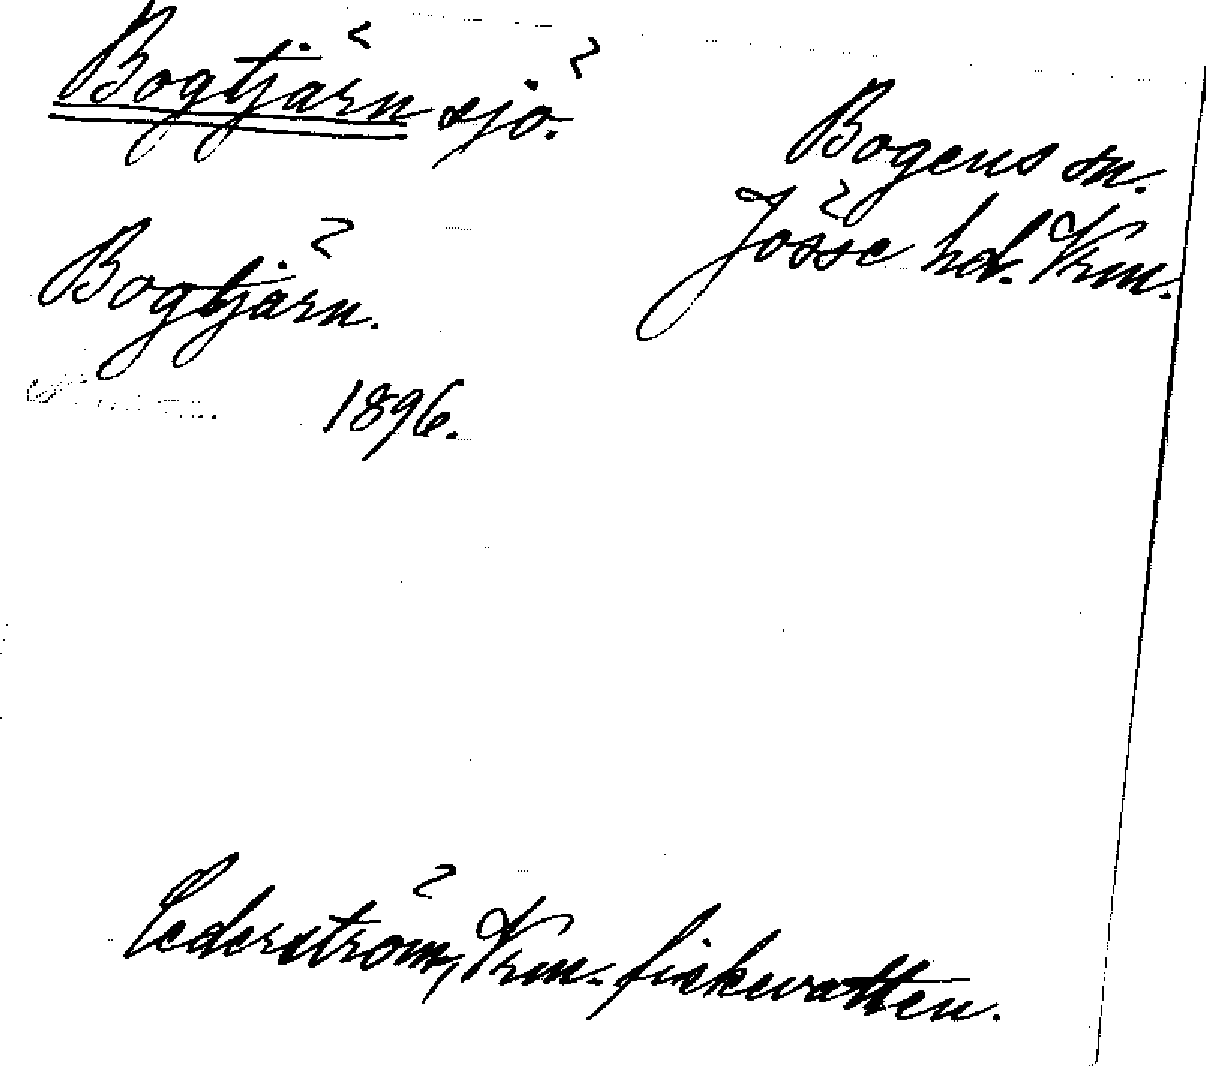 Bogtjärn sjö.
Bogens sn.
Jösse hd. Vrm.
Bogtjärn.
1896.
Cederström, Vrm. fiskevatten.